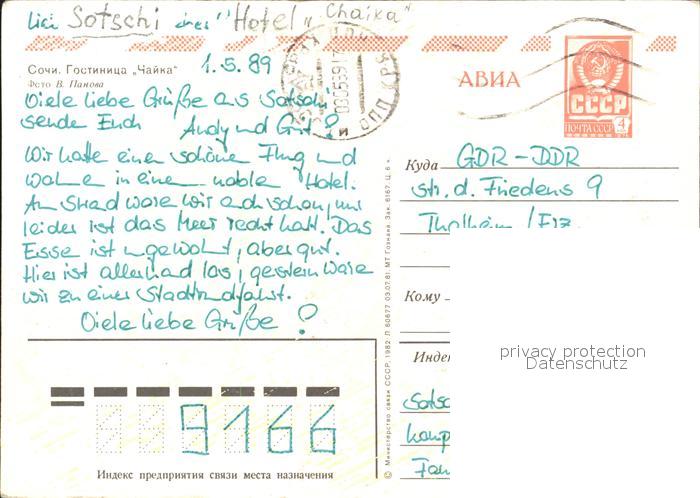 Sotschi Hotel „Chaika"
1.5.89
Сочи. Гостиница „Чайка"
Фото В. Панова
Viele liebe Grüße aus Sotschi
sende Euch Andy und
Wir hatte einen schöne Flug und
wohne in einem noble Hotel.
Am Strad ware wir auch schon, nur
leider ist das Meer recht kalt. Das
Esse ist ungewohnt, aber gut.
Hier ist allerhand los, gestern ware
wir zu einer Stadtrundfahrt.
Viele liebe Grüße
9166
Индекс предприятия связи места назначения
© Министерство связи СССР. 1982. Л 80677 03.07.81. МТ Гознака. Зак. 6167. Ц. 6 к.
АВИА
СССР
ПОЧТА СССР 4
Куда GDR-DDR
str. d. Friedens 9
Thalheim / Erz.
Кому
privacy protection
Datenschutz
Индек
Sotsc